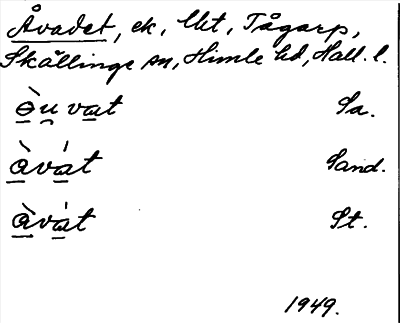 Åvadet, ek, Ukt, Tågarp,
Skällinge sn, Himle hd, Hall. l.
ɵ̀u̯vat Sa.
àvát Sand.
àvát St.
1949.